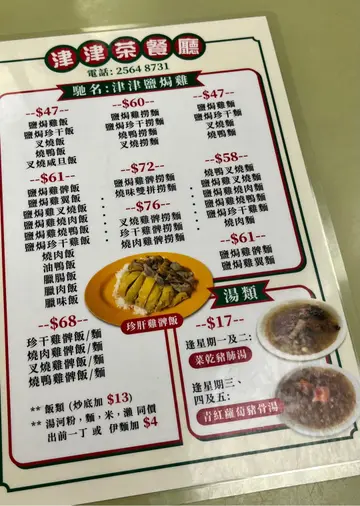 津津茶餐廳
電話: 2564 8731
馳名:津津鹽焗雞
--$47--
鹽焗雞飯
鹽焗珍干飯
叉燒飯
燒鴨飯
叉燒咸旦飯
--$61--
鹽焗雞髀飯
鹽焗雞翼飯
鹽焗雞叉燒飯
鹽焗雞燒肉飯
鹽焗雞燒鴨飯
鹽焗珍干雞飯
燒肉飯
油鴨飯
臘腸飯
臘肉飯
臘味飯
--$68--
珍干雞髀飯/麵
燒肉雞髀飯/麵
叉燒雞髀飯/麵
燒鴨雞髀飯/麵
--$60--
鹽焗雞撈麵
鹽焗珍干撈麵
燒鴨撈麵
叉燒撈麵
--$72--
鹽焗雞髀撈麵
燒味雙拼撈麵
--$76--
叉燒雞髀撈麵
珍干雞髀撈麵
燒肉雞髀撈麵
--$47--
鹽焗雞麵
鹽焗珍干麵
叉燒麵
燒鴨麵
--$58--
燒鴨叉燒麵
鹽焗雞叉燒麵
鹽焗雞燒肉麵
鹽焗雞燒鴨麵
鹽焗珍干雞麵
叉燒珍干麵
燒肉麵
--$61--
鹽焗雞髀麵
鹽焗雞翼麵
珍肝雞髀飯
湯類
--$17--
逢星期一及二:
菜乾豬肺湯
逢星期三、
四及五:
青紅蘿蔔豬骨湯
** 飯類 (炒底加 $13)
** 湯河粉，麵，米，瀨 同價
出前一丁 或 伊麵加 $4